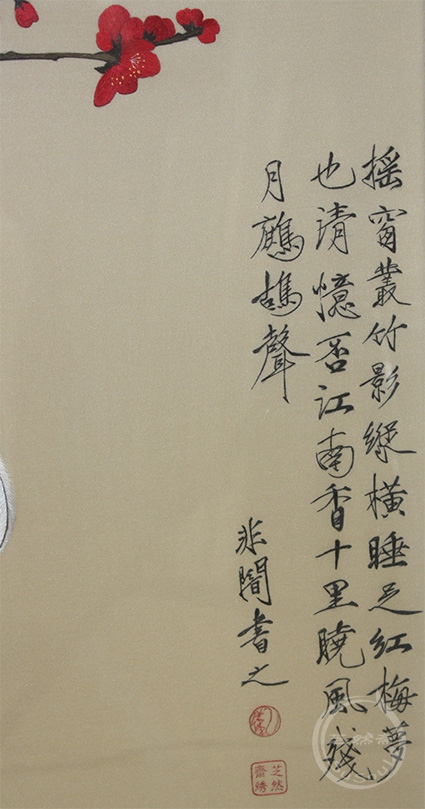 搖窗叢竹影縱橫睡足紅梅夢
也清憶否江南香十里曉風殘
月鷓鴣聲
非闇書之
芝然
齋绣